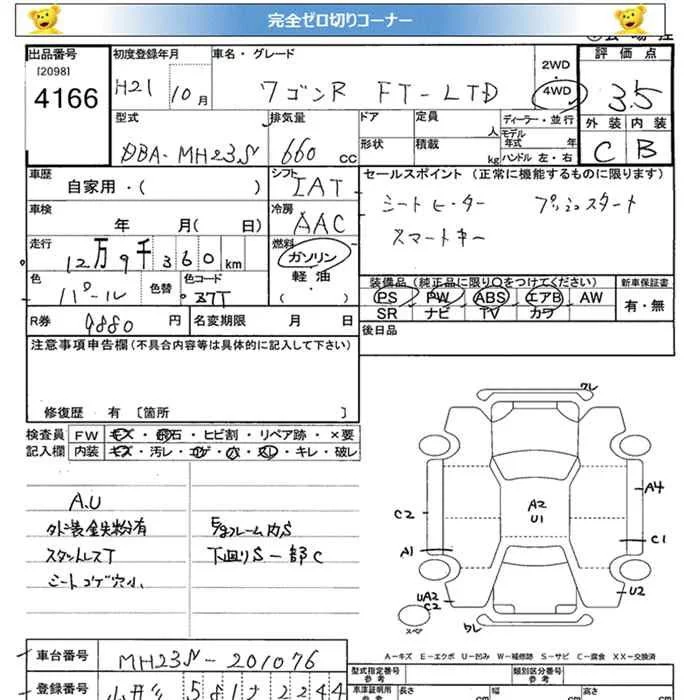 完全ゼロ切りコーナー
出品番号
[2098]
4166
初度登録年月
H21 10月
車名・グレード
ワゴンR FT-LTD
2WD
4WD
評価点
3.5
外装 内装
C B
型式
DBA-MH23S
排気量
660 cc
ドア
形状
定員
人
積載
kg
ディーラー・並行
モデル
年式 年
ハンドル 左・右
車歴
自家用・( )
シフト
IAT
セールスポイント(正常に機能するものに限ります)
シートヒーター プッシュスタート
スマートキー
車検
年 月( 日)
冷房
AAC
走行
12万9千360km
燃料
ガソリン
軽・油
( )
色
パール
色替
色コード
37T
装備品(純正品に限り○をつけてください)
PS PW ABS エアB AW
SR ナビ TV カワ
新車保証書
有・無
R券
9880円
名変期限 月 日
後日品
注意事項申告欄(不具合内容等は具体的に記入して下さい)
修復歴 有 〔箇所 〕
検査員
記入欄
FW キズ・飛石・ヒビ割・リペア跡・×要
内装 キズ・汚レ・コゲ・穴・スレ・キレ・破レ
A.U
外装鉄粉有
スタットレスT
シートコゲ穴小
E/gフレーム内S
下回りS一部C
ワレ
A4
C2
A2
U1
C1
A1
UA2
C2
U2
スペア
ワレ
A－キズ E－エクボ U－凹み W－補修跡 S－サビ C－腐食 XX－交換済
車台番号
MH23S-201076
型式指定番号
参考
類別区分番号
参考
登録番号
581 2244
車庫証明用
参考
長さ
cm
幅
cm
高さ
cm